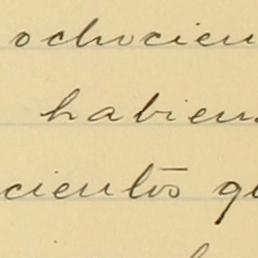 ochocien
habien
cientos qu